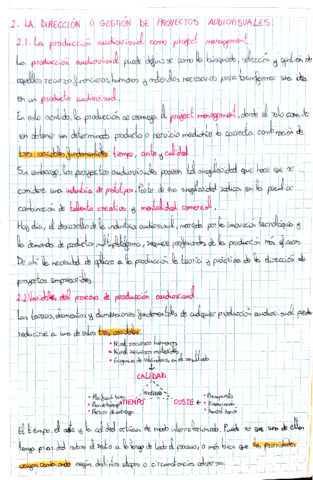 2. LA DIRECCIÓN O GESTIÓN DE PROYECTOS AUDIOVISUALES
2.1. La producción audiovisual como project management
La producción audiovisual puede definirse como la búsqueda, selección y gestión de
aquellos recursos financieros, humanos y materiales necesarios para transformar una idea
en un producto audiovisual.
En este sentido, la producción se asemeja al project management, donde el reto consiste
en obtener un determinado producto o servicio mediante la correcta combinación de
tres variables fundamentales: tiempo, coste y calidad
Sin embargo, los proyectos audiovisuales poseen tal singularidad que hace que se
considere una industria de prototipos. Parte de esa singularidad radica en la peculiar
combinación de talento creativo y mentalidad comercial.
Hoy día, el desarrollo de la industria audiovisual, marcado por la innovación tecnológica y
la demanda de productos multiplataforma, requiere profesionales de la producción más eficaces.
De ahí la necesidad de aplicar a la producción la teoría y práctica de la dirección de
proyectos empresariales.
2.2 Variables del proceso de producción audiovisual
Las tareas, elementos y dimensiones fundamentales de cualquier producción audiovisual puede
reducirse a una de estas tres variables:
• Nivel recursos humanos
• Nivel recursos materiales
• Exigencia de en el resultado
CALIDAD
• Presupuesto
TIEMPO
COSTE
• Financiación
• Plazos de entrega
El tiempo, el coste y la calidad actúan de modo interrelacionado. Puede ser que una de ellas
tenga prioridad sobre el resto a lo largo de todo el proceso, o más bien que las prioridades
vayan cambiando según distintas etapas o circunstancias adversas.